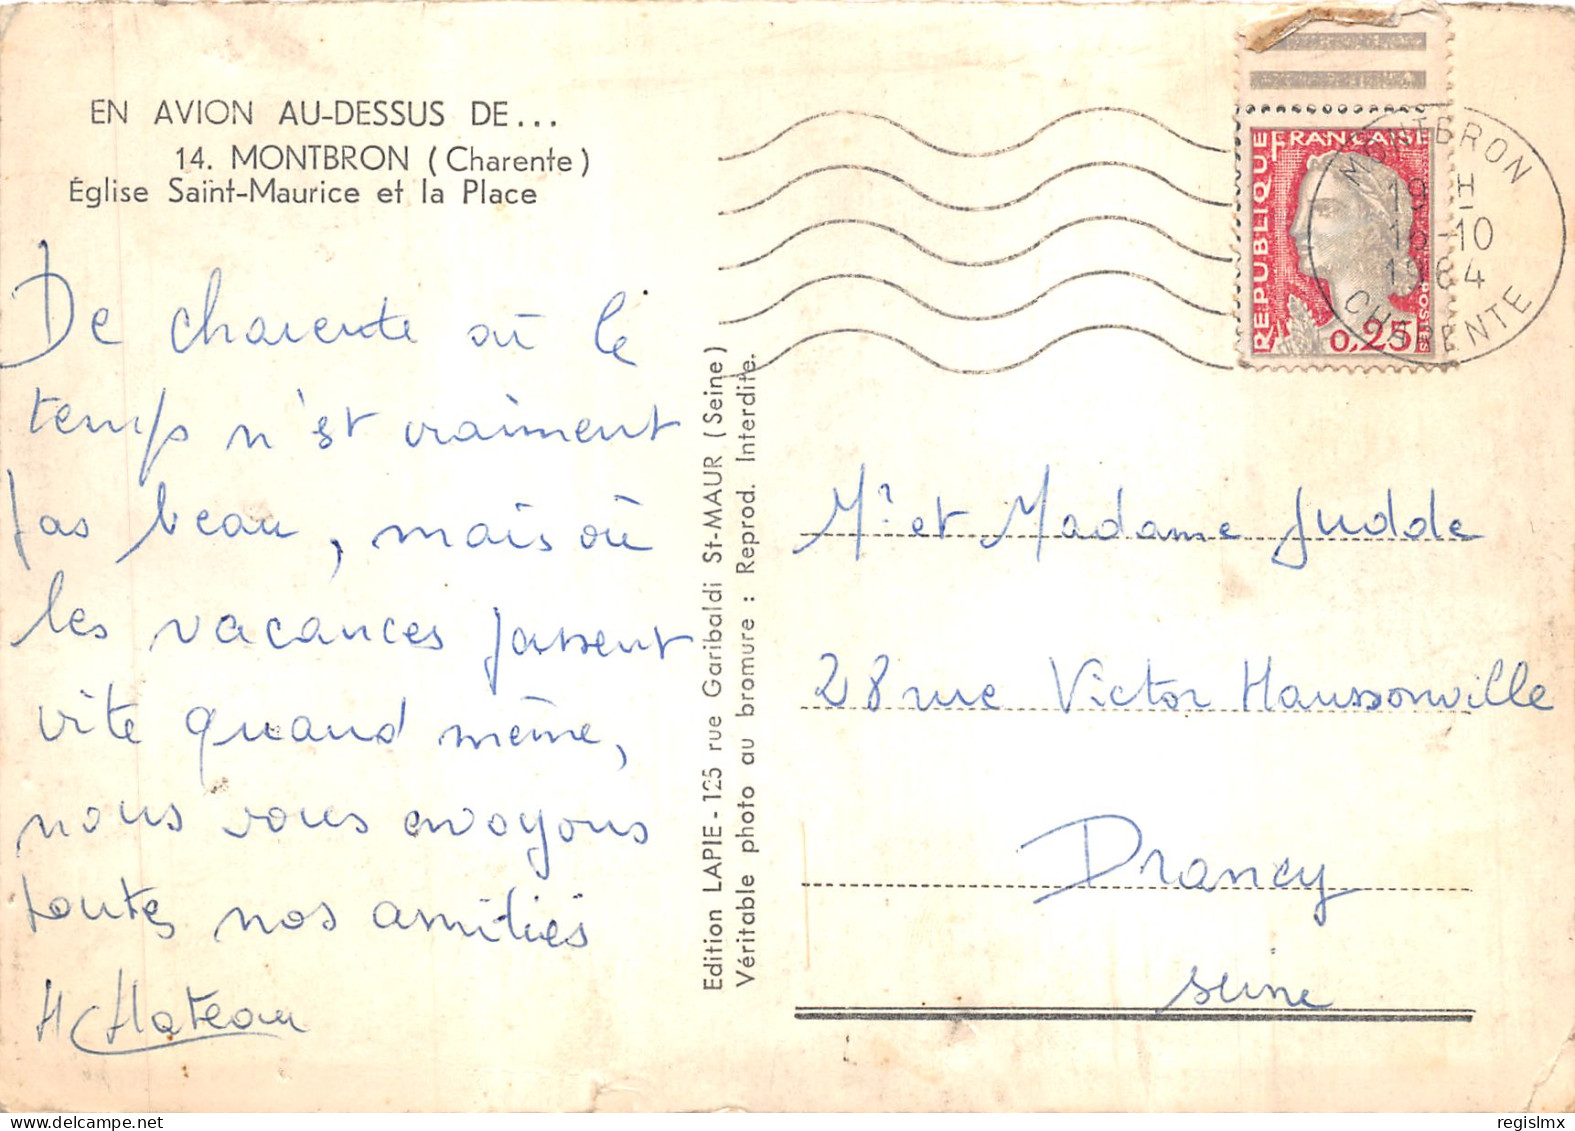 EN AVION AU-DESSUS DE...
14. MONTBRON (Charente)
Église Saint-Maurice et la Place
De charente où le
temps n'est vraiment
pas beau, mais où
les vacances passent
vite quand même,
nous vous envoyons
toutes nos amitiés
Edition LAPIE - 125 rue Garibaldi St-MAUR (Seine)
Véritable photo au bromure : Reprod. Interdite.
RÉPUBLIQUE FRANÇAISE
POSTES
0,25
MONTBRON
19 H
16-10
1964
CHARENTE
Mr et Madame Judde
28 rue Victor Haussonville
Drancy
Seine
delcampe.net
regislmx